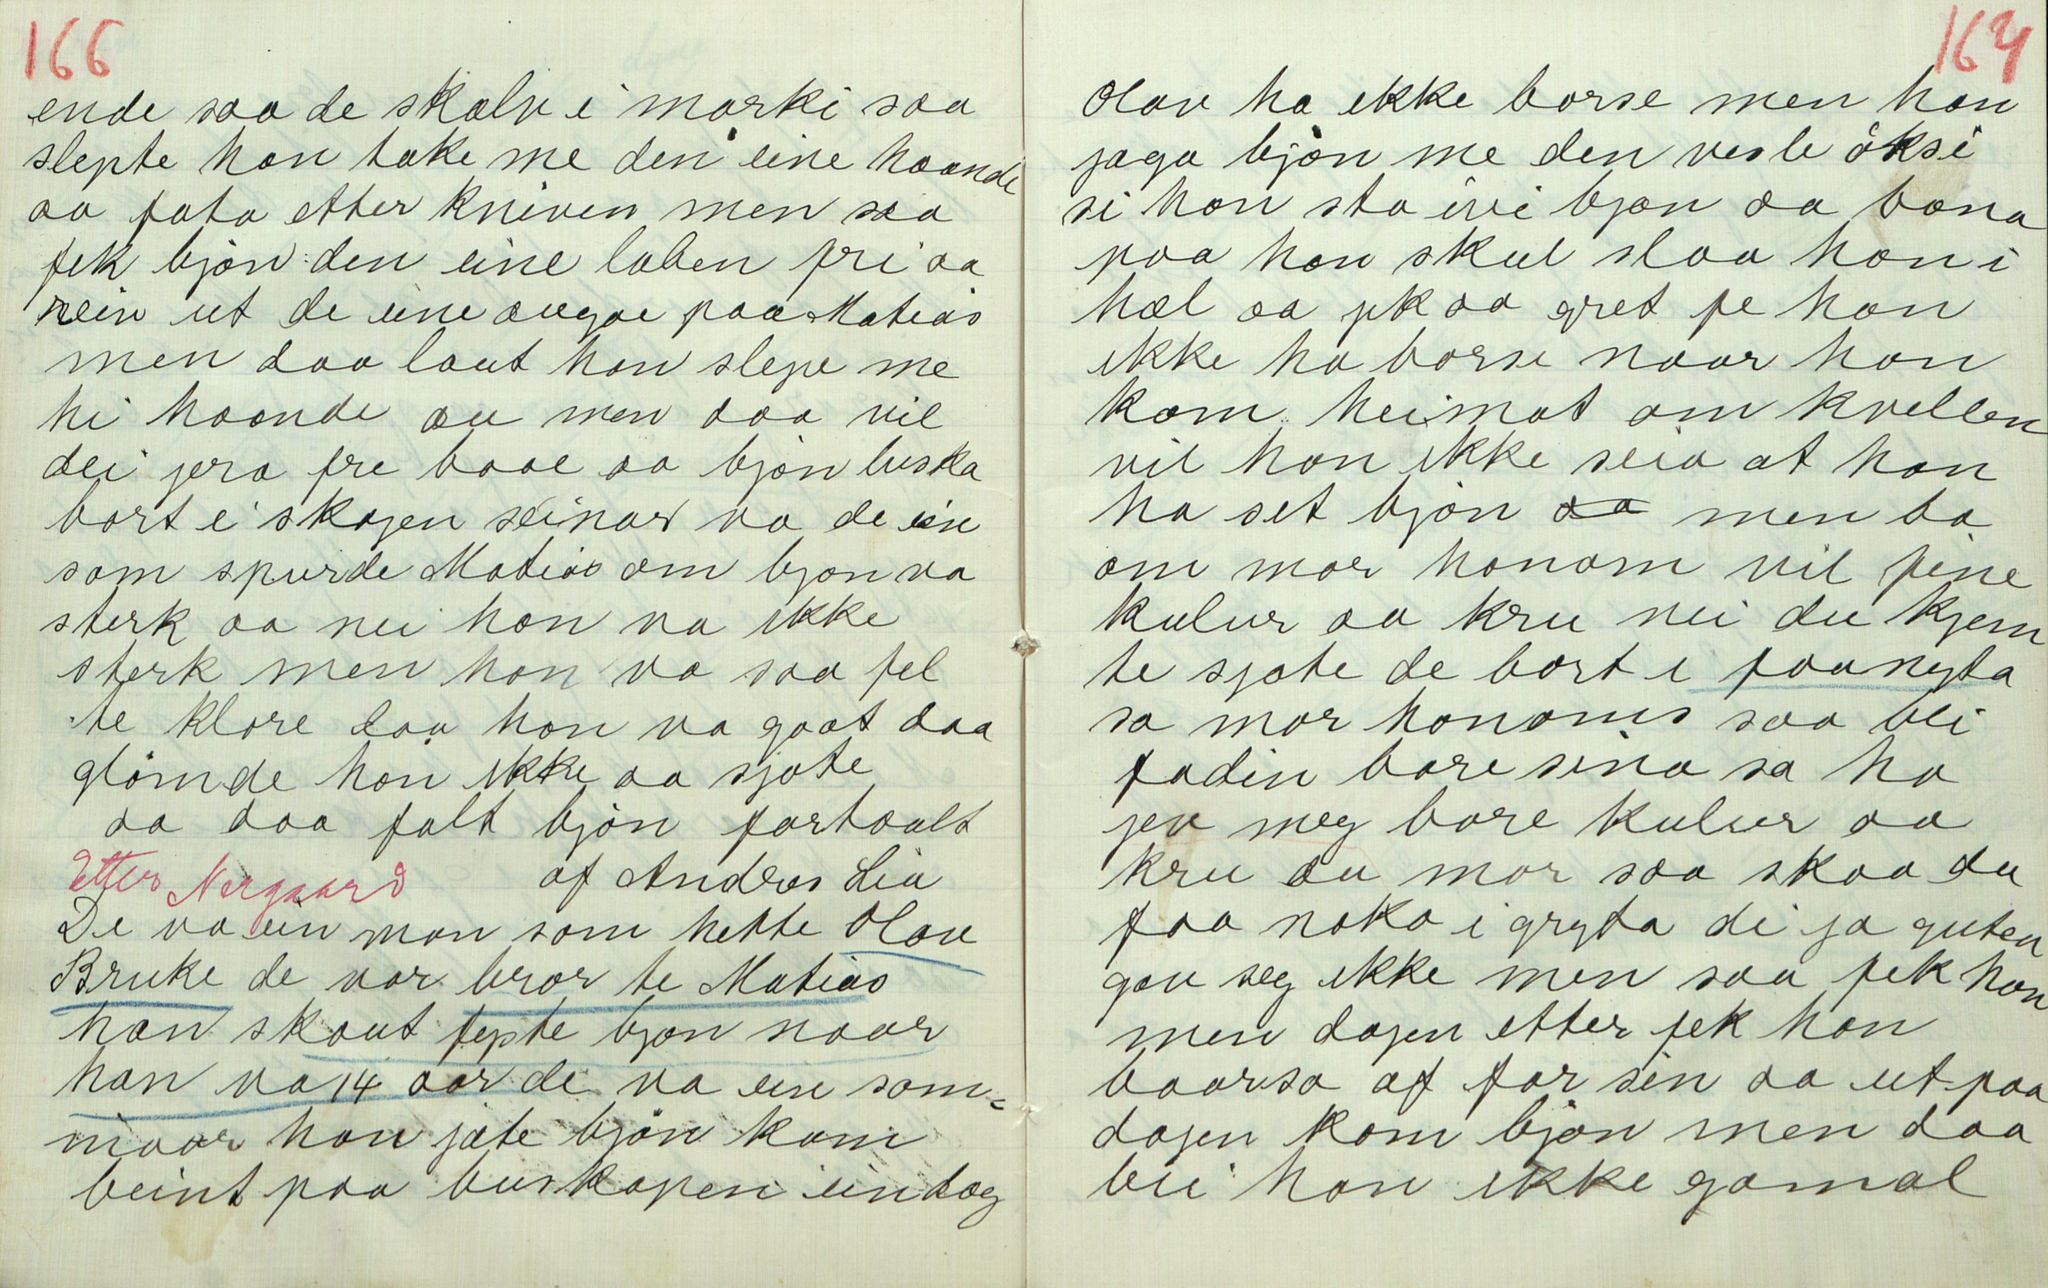 166
ende saa de skalv i marki saa
slepte han take me den eine haande
aa fata etter kniven men saa
fek bjøn den eine laben fri aa
reiv ut de eine augae paa Matias
men daa laut han slepe me
hi haande au men daa vil
dei jera fre baae aa bjøn luska
bort i skogen seinar va de ein
som spurde Matias om bjøn va
sterk aa nei han va ikke
sterk men han va saa fel
te klore daa han va goat daa
glømde han ikke aa sjøte
aa daa falt bjøn fortoalt
Etter Nergaard af Andres Lia
De va ein man som hette Olav
Bruke de var bror te Matias
han skaut fyste bjøn naar
han va 14 aar de va ein som=
maar han jøte bjøn kom
beint paa buskapen ein dag
167
Olav ha ikke børse men han
jaga bjøn me den vesle øksi
si han sto ivi bjøn aa bana
paa han skul slaa han i
hæl aa jik aa gret fe han
ikke ha børse naar han
kom heimat om kvellen
vil han ikke seia at han
ha set bjøn men ba
om mor honom vil fine
kulur aa kru nei du kjem
te sjøte de bort i faanyta
sa mor honoms saa bli
fadin bare sina sa ha
jev meg bare kulur aa
kru du mor saa skaa du
faa noko i gryta di ja guten
gav seg ikke men saa fek han
men dagen etter fek han
baarsa af far sin aa ut paa
dagen kom bjøn men daa
blei han ikke gamal